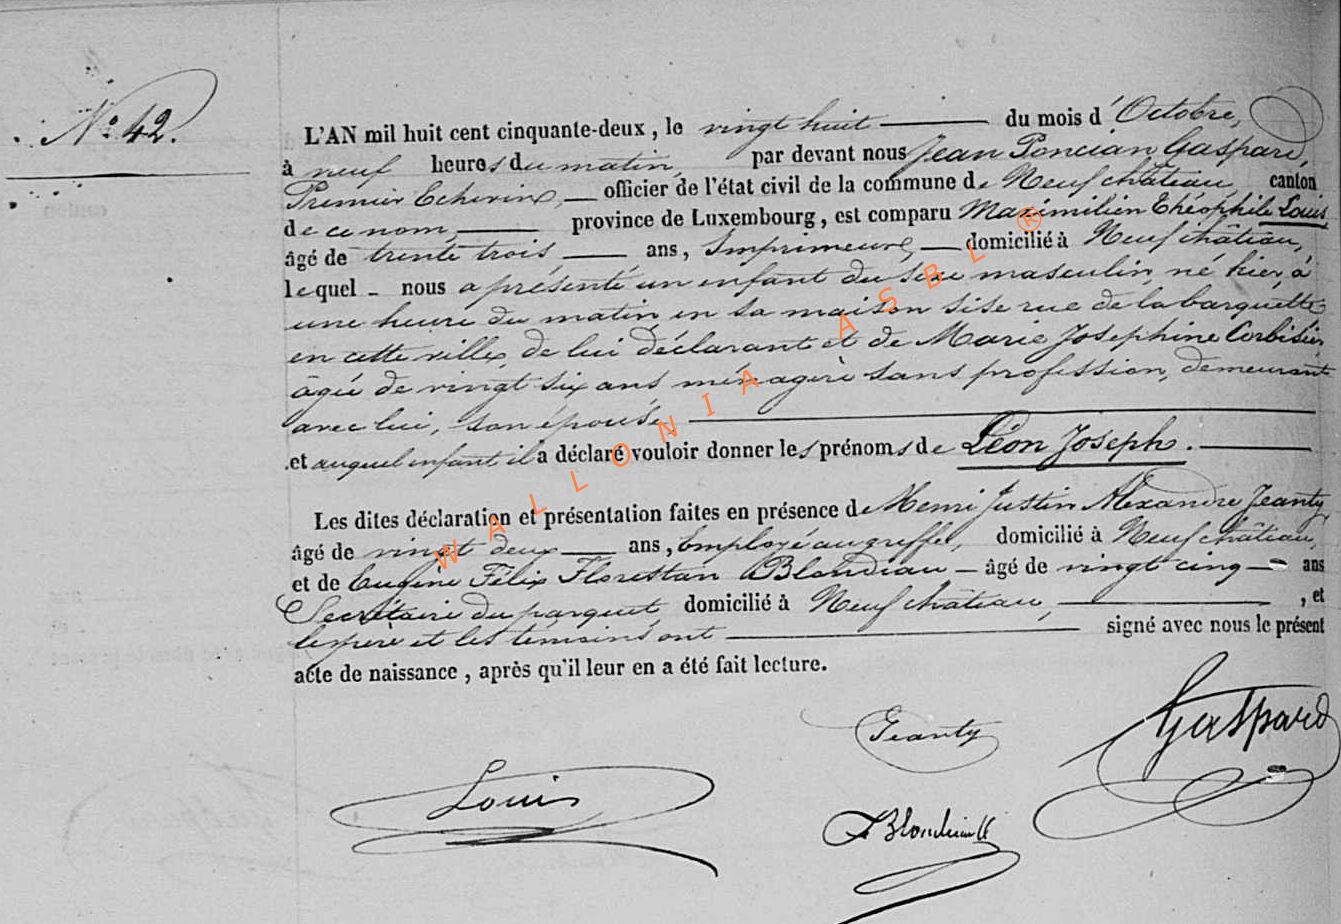 N° 42.
L'AN mil huit cent cinquante-deux, le vingt huit du mois d'Octobre,
à neuf heures du matin, par devant nous Jean Poncian Gaspard,
Premier Echevin, officier de l'état civil de la commune de Neufchâteau, canton
de ce nom, province de Luxembourg, est comparu Maximilien Théophile Louis
âgé de trente trois ans, Imprimeur, domicilié à Neufchâteau,
lequel nous a présenté un enfant du sexe masculin, né hier, à
une heure du matin, en sa maison sise rue de la barquette
en cette ville, de lui déclarant et de Marie Josephine Corbisier,
âgée de vingt six ans ménagère sans profession, demeurant
avec lui, son épouse,
et auquel enfant il a déclaré vouloir donner les prénoms de Léon Joseph.
Les dites déclaration et présentation faites en présence de Henri Justin Alexandre Jeanty,
âgé de vingt deux ans, Employé au greffe, domicilié à Neufchâteau,
et de Eugène Félix Florestan Blondiau - âgé de vingt cinq ans
Secrétaire du parquet, domicilié à Neufchâteau, , et
le père et les témoins ont signé avec nous le présent
acte de naissance, après qu'il leur en a été fait lecture.
Jeanty
Gaspard
Louis
Blondiau
WALLONIA ASBL ®